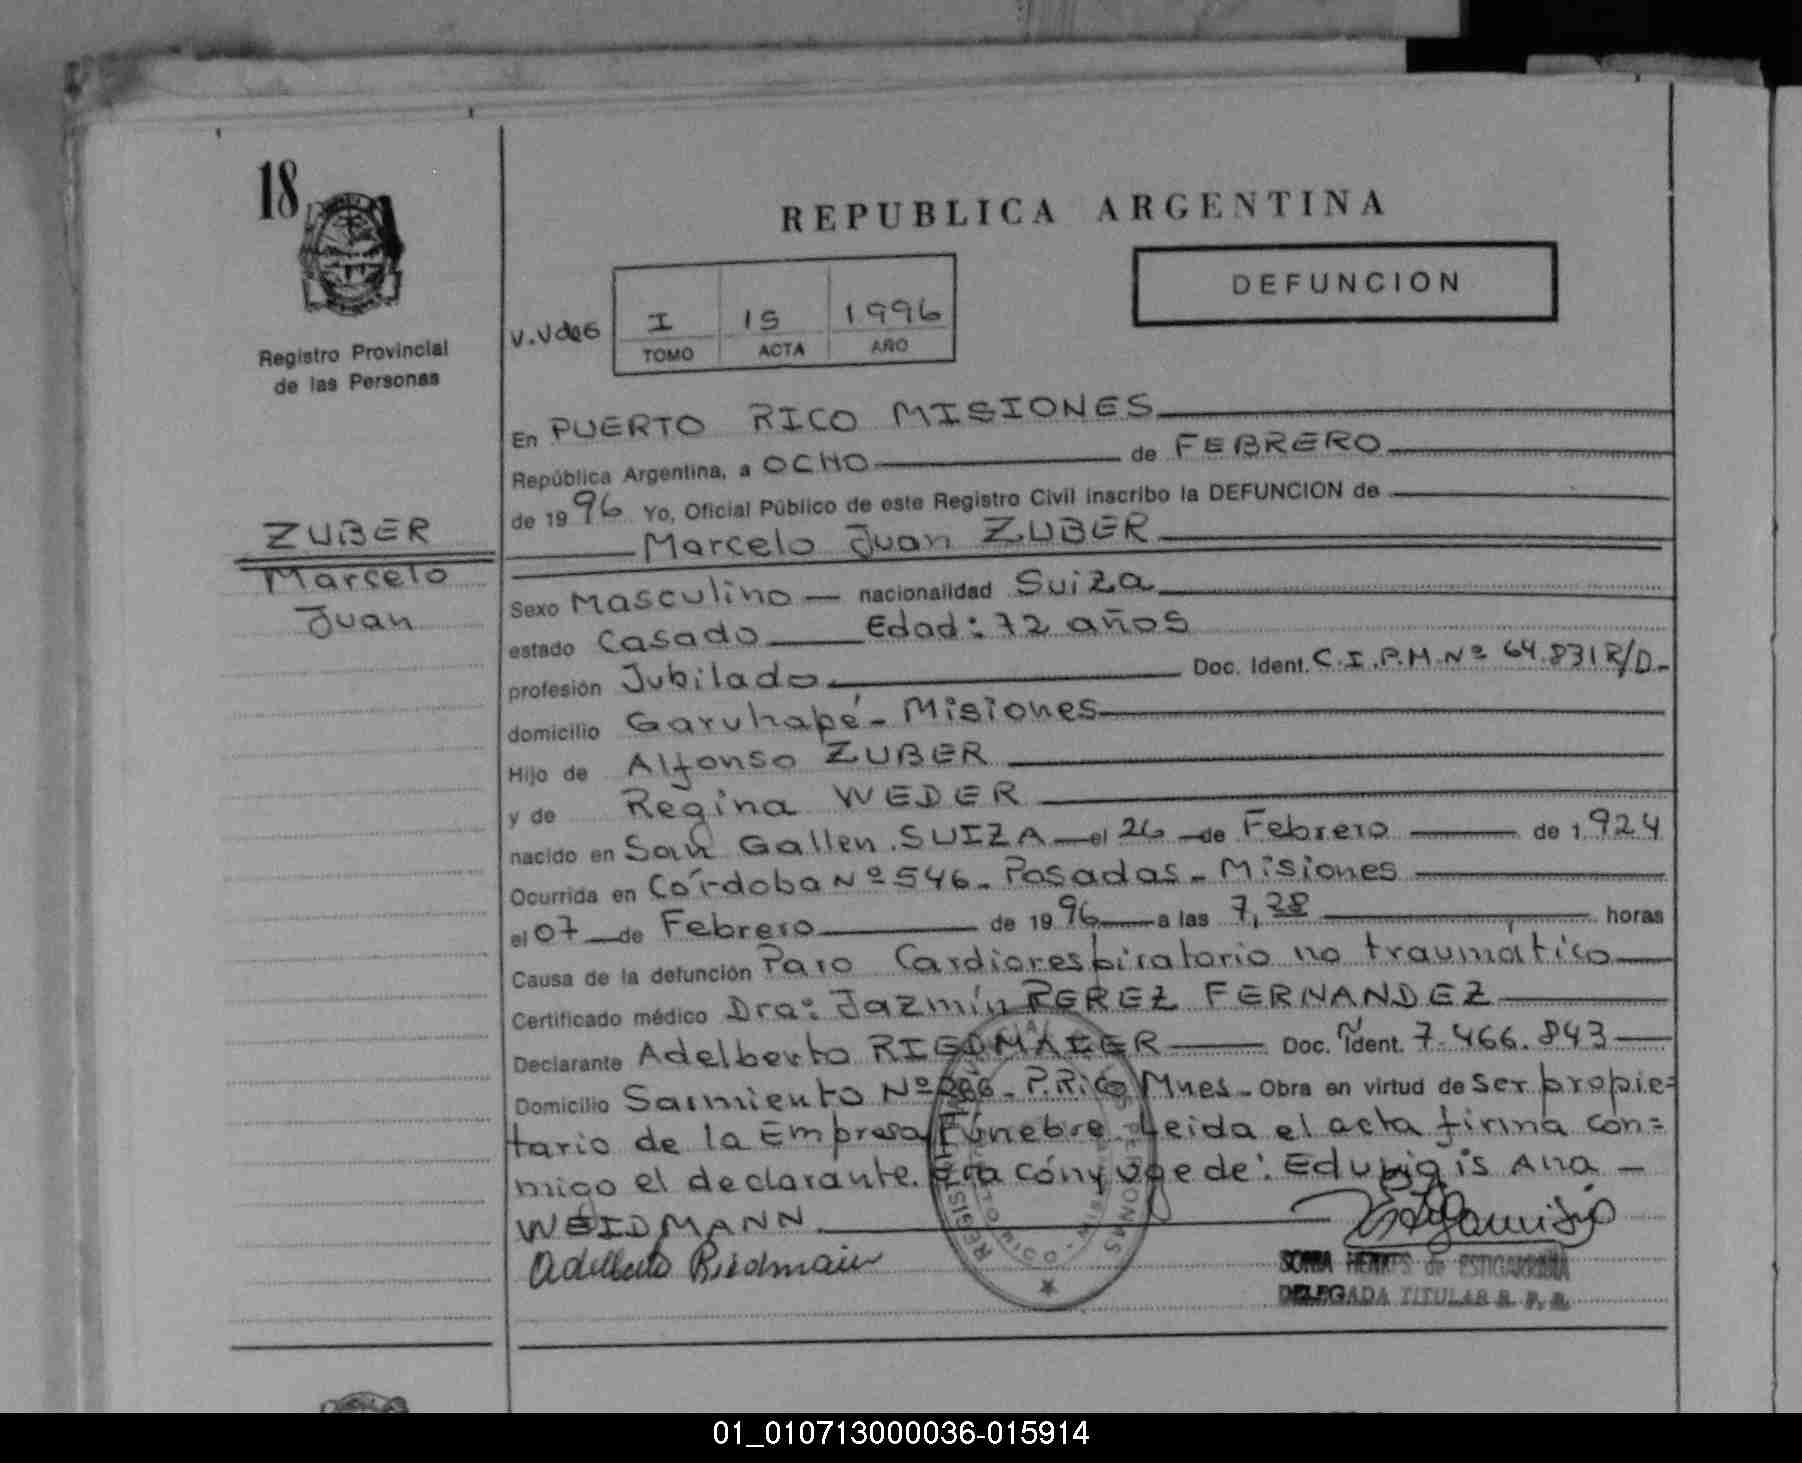 18
REPUBLICA ARGENTINA
DEFUNCION
V.Vdes I 15 1996
TOMO ACTA AÑO
Registro Provincial
de las Personas
ZUBER
Marcelo
Juan
En PUERTO RICO MISIONES
República Argentina, a OCHO de FEBRERO
de 1996 Yo, Oficial Público de este Registro Civil inscribo la DEFUNCION de
Marcelo Juan ZUBER
Sexo Masculino nacionalidad Suiza
estado Casado Edad: 72 años
profesión Jubilado Doc. Ident. C.I.P.M.Nº 64.831 R/D.
domicilio Garuhapé - Misiones
Hijo de Alfonso ZUBER
y de Regina WEDER
nacido en San Gallen. SUIZA el 26 de Febrero de 1.924
Ocurrida en Córdoba Nº 546 - Posadas - Misiones
el 07 de Febrero de 1996 a las 7,28 horas
Causa de la defunción Paro Cardiorespiratorio no traumático
Certificado médico Dra: Jazmín PEREZ FERNANDEZ
Declarante Adelberto RIEDMAIER Doc. Ident. 7.466.843
Domicilio Sarmiento Nº 266 - P. Rico Mnes - Obra en virtud de ser propie=
tario de la Empresa Fúnebre. Leida el acta firma con=
migo el declarante. Era cónyuge de: Eduvigis Ana -
WEIDMANN
Adelberto Riedmaier
SONIA HENKES de ESTIGARRIBIA
DELEGADA TITULAR R. P. P.
01_010713000036-015914